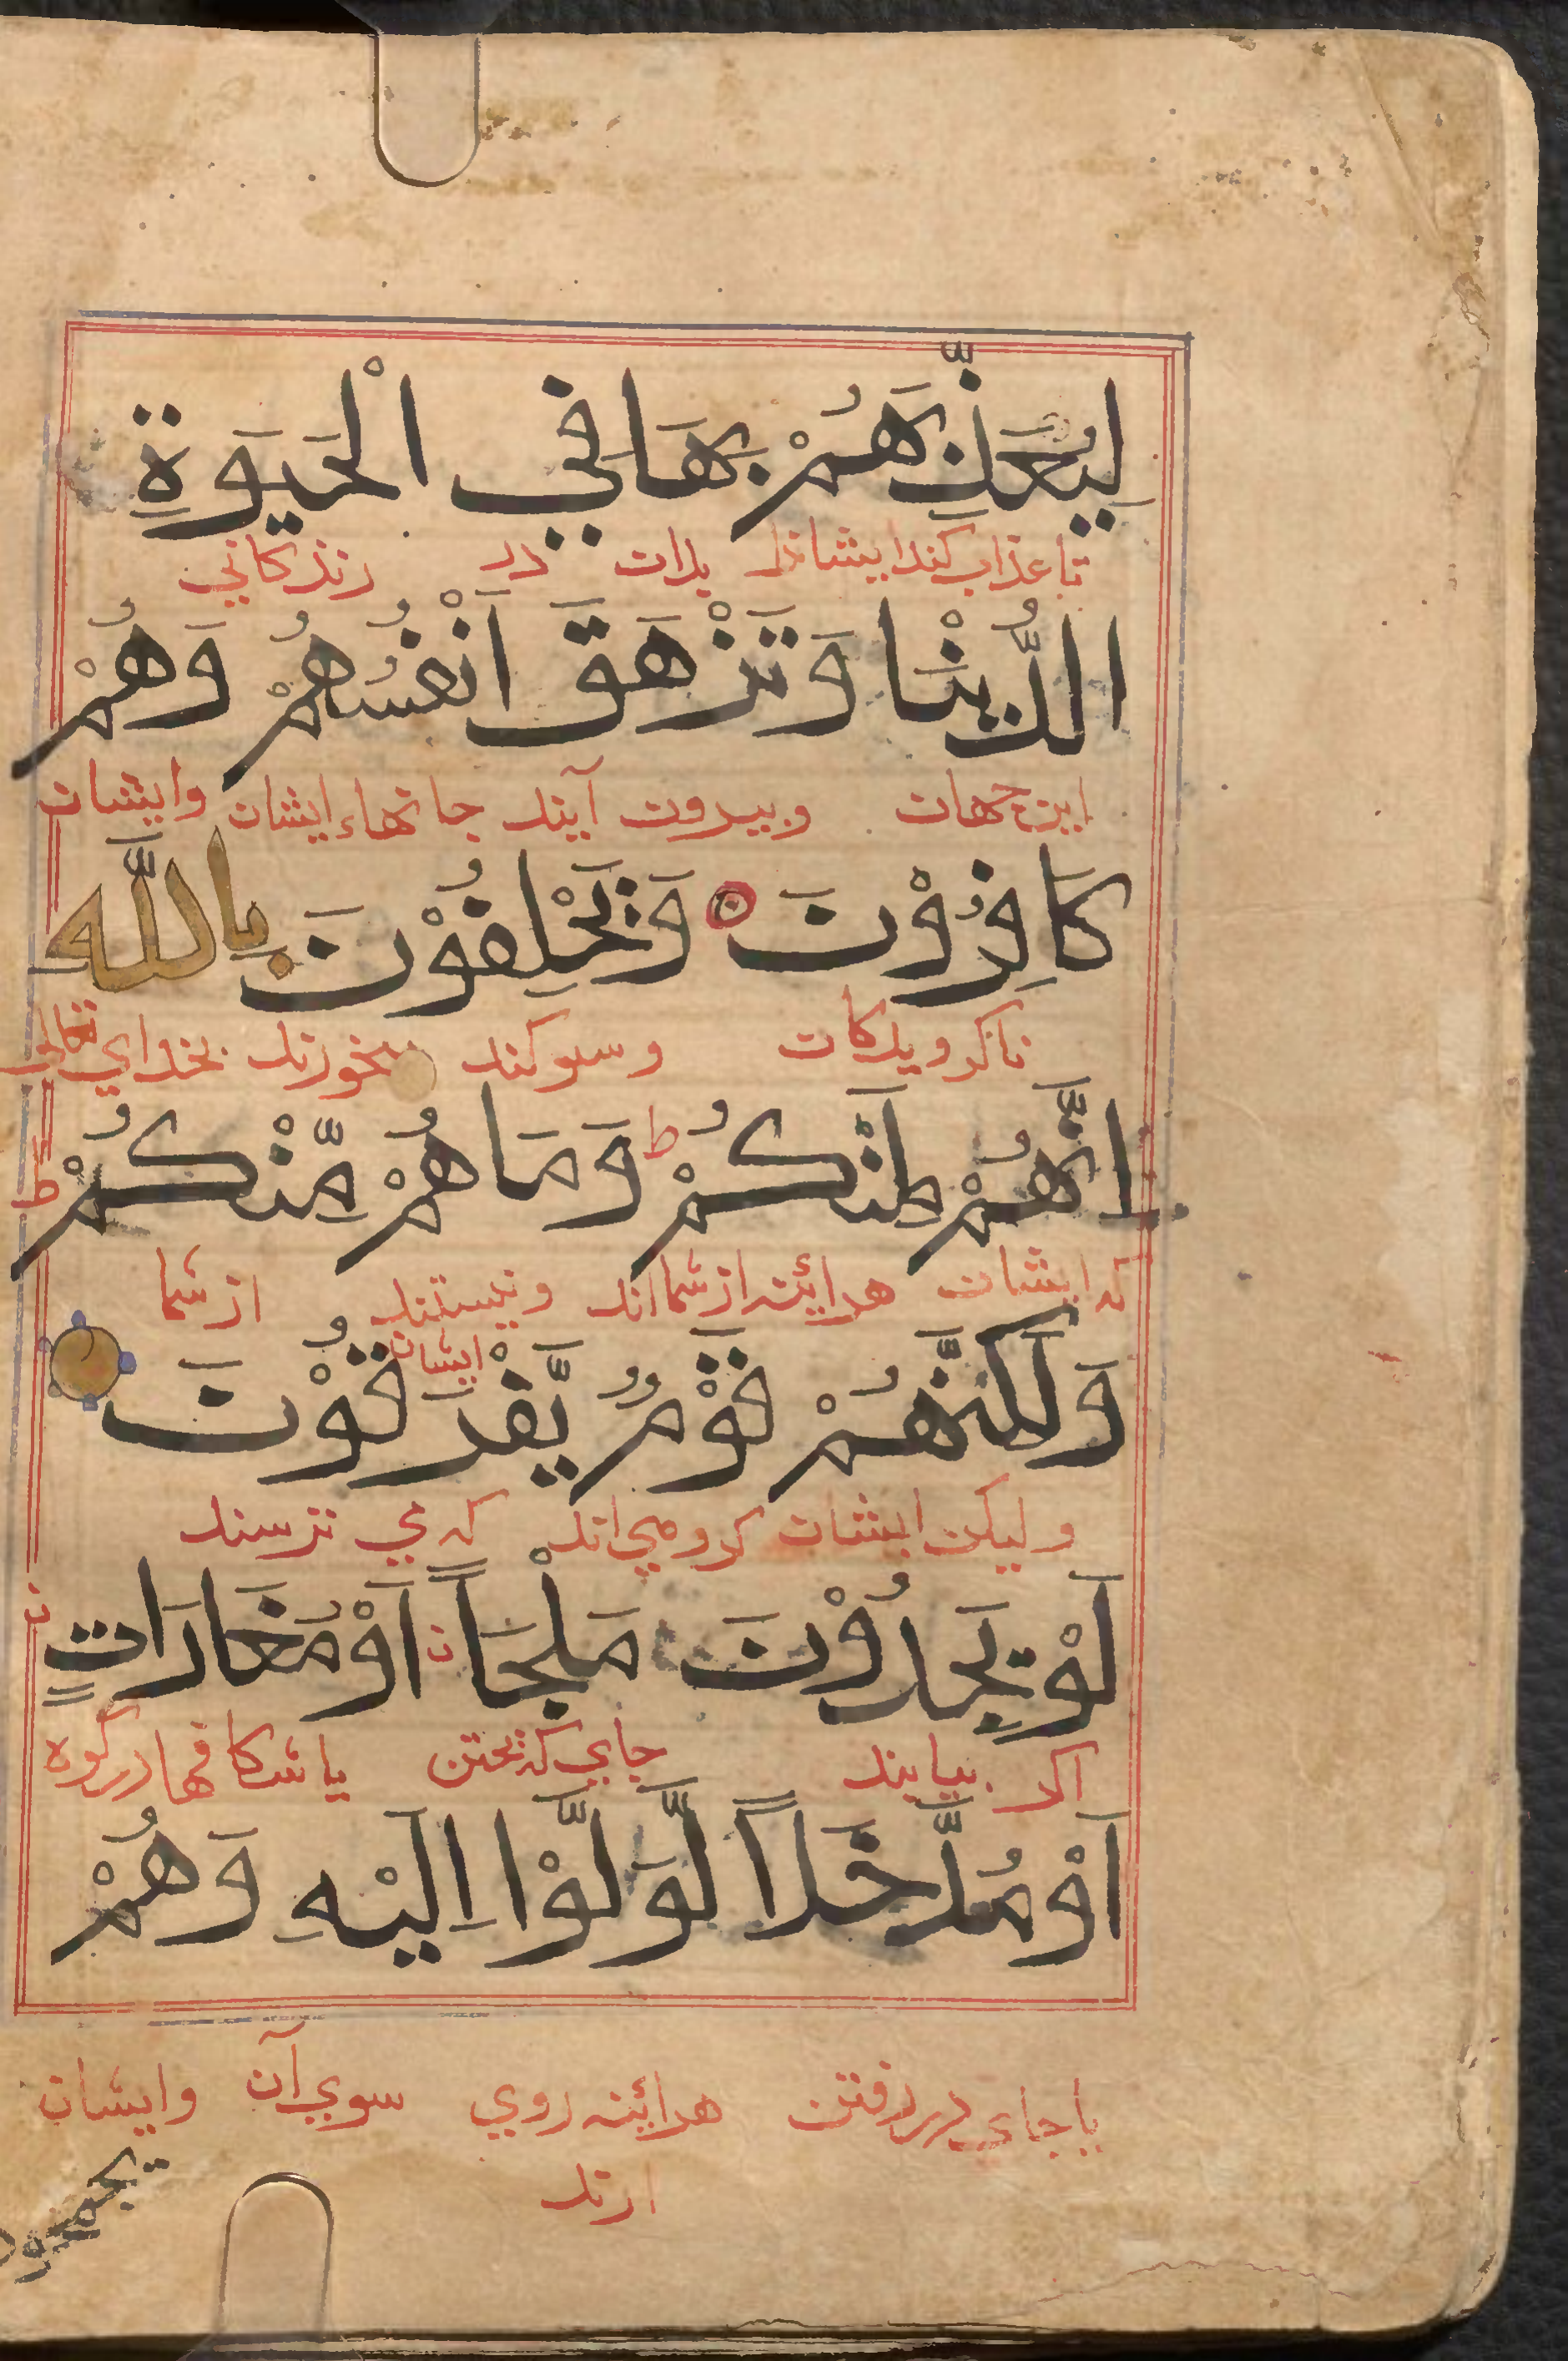 لِيُعَذِّبَهُمْ بِهَا فِي الْحَيَوةِ
تا عذاب كند ايشانرا بدان در زندكاني
الدُّنْيَا وَتَزْهَقَ اَنْفُسُهُمْ وَهُمْ
اين جهان وبيرون آيند جانهاء ايشان وايشان
كَافِرُوْنَ وَيَحْلِفُوْنَ بِاللَّهِ
ناكرويدكان وسوكند ميخورند بخداي تعالى
اِنَّهُمْ لَمِنْكُمْ ط وَمَا هُمْ مِّنْكُمْ ط
كه ايشان هرائينه از شمااند ونيستند ايشان از شما
وَلَكِنَّهُمْ قَوْمٌ يَّفْرَقُوْنَ
وليكن ايشان كروهي اند كه مي ترسند
لَوْ يَجِدُوْنَ مَلْجَاً اَوْ مَغَارَاتٍ
اكر بيابند جاي كريختن يا شكافها در كوه
اَوْ مُدَّخَلاً لَّوَلَّوْا اِلَيْهِ وَهُمْ
يا جاي در رفتن هرائينه روي سوي آن وايشان
ارند
يجمحون